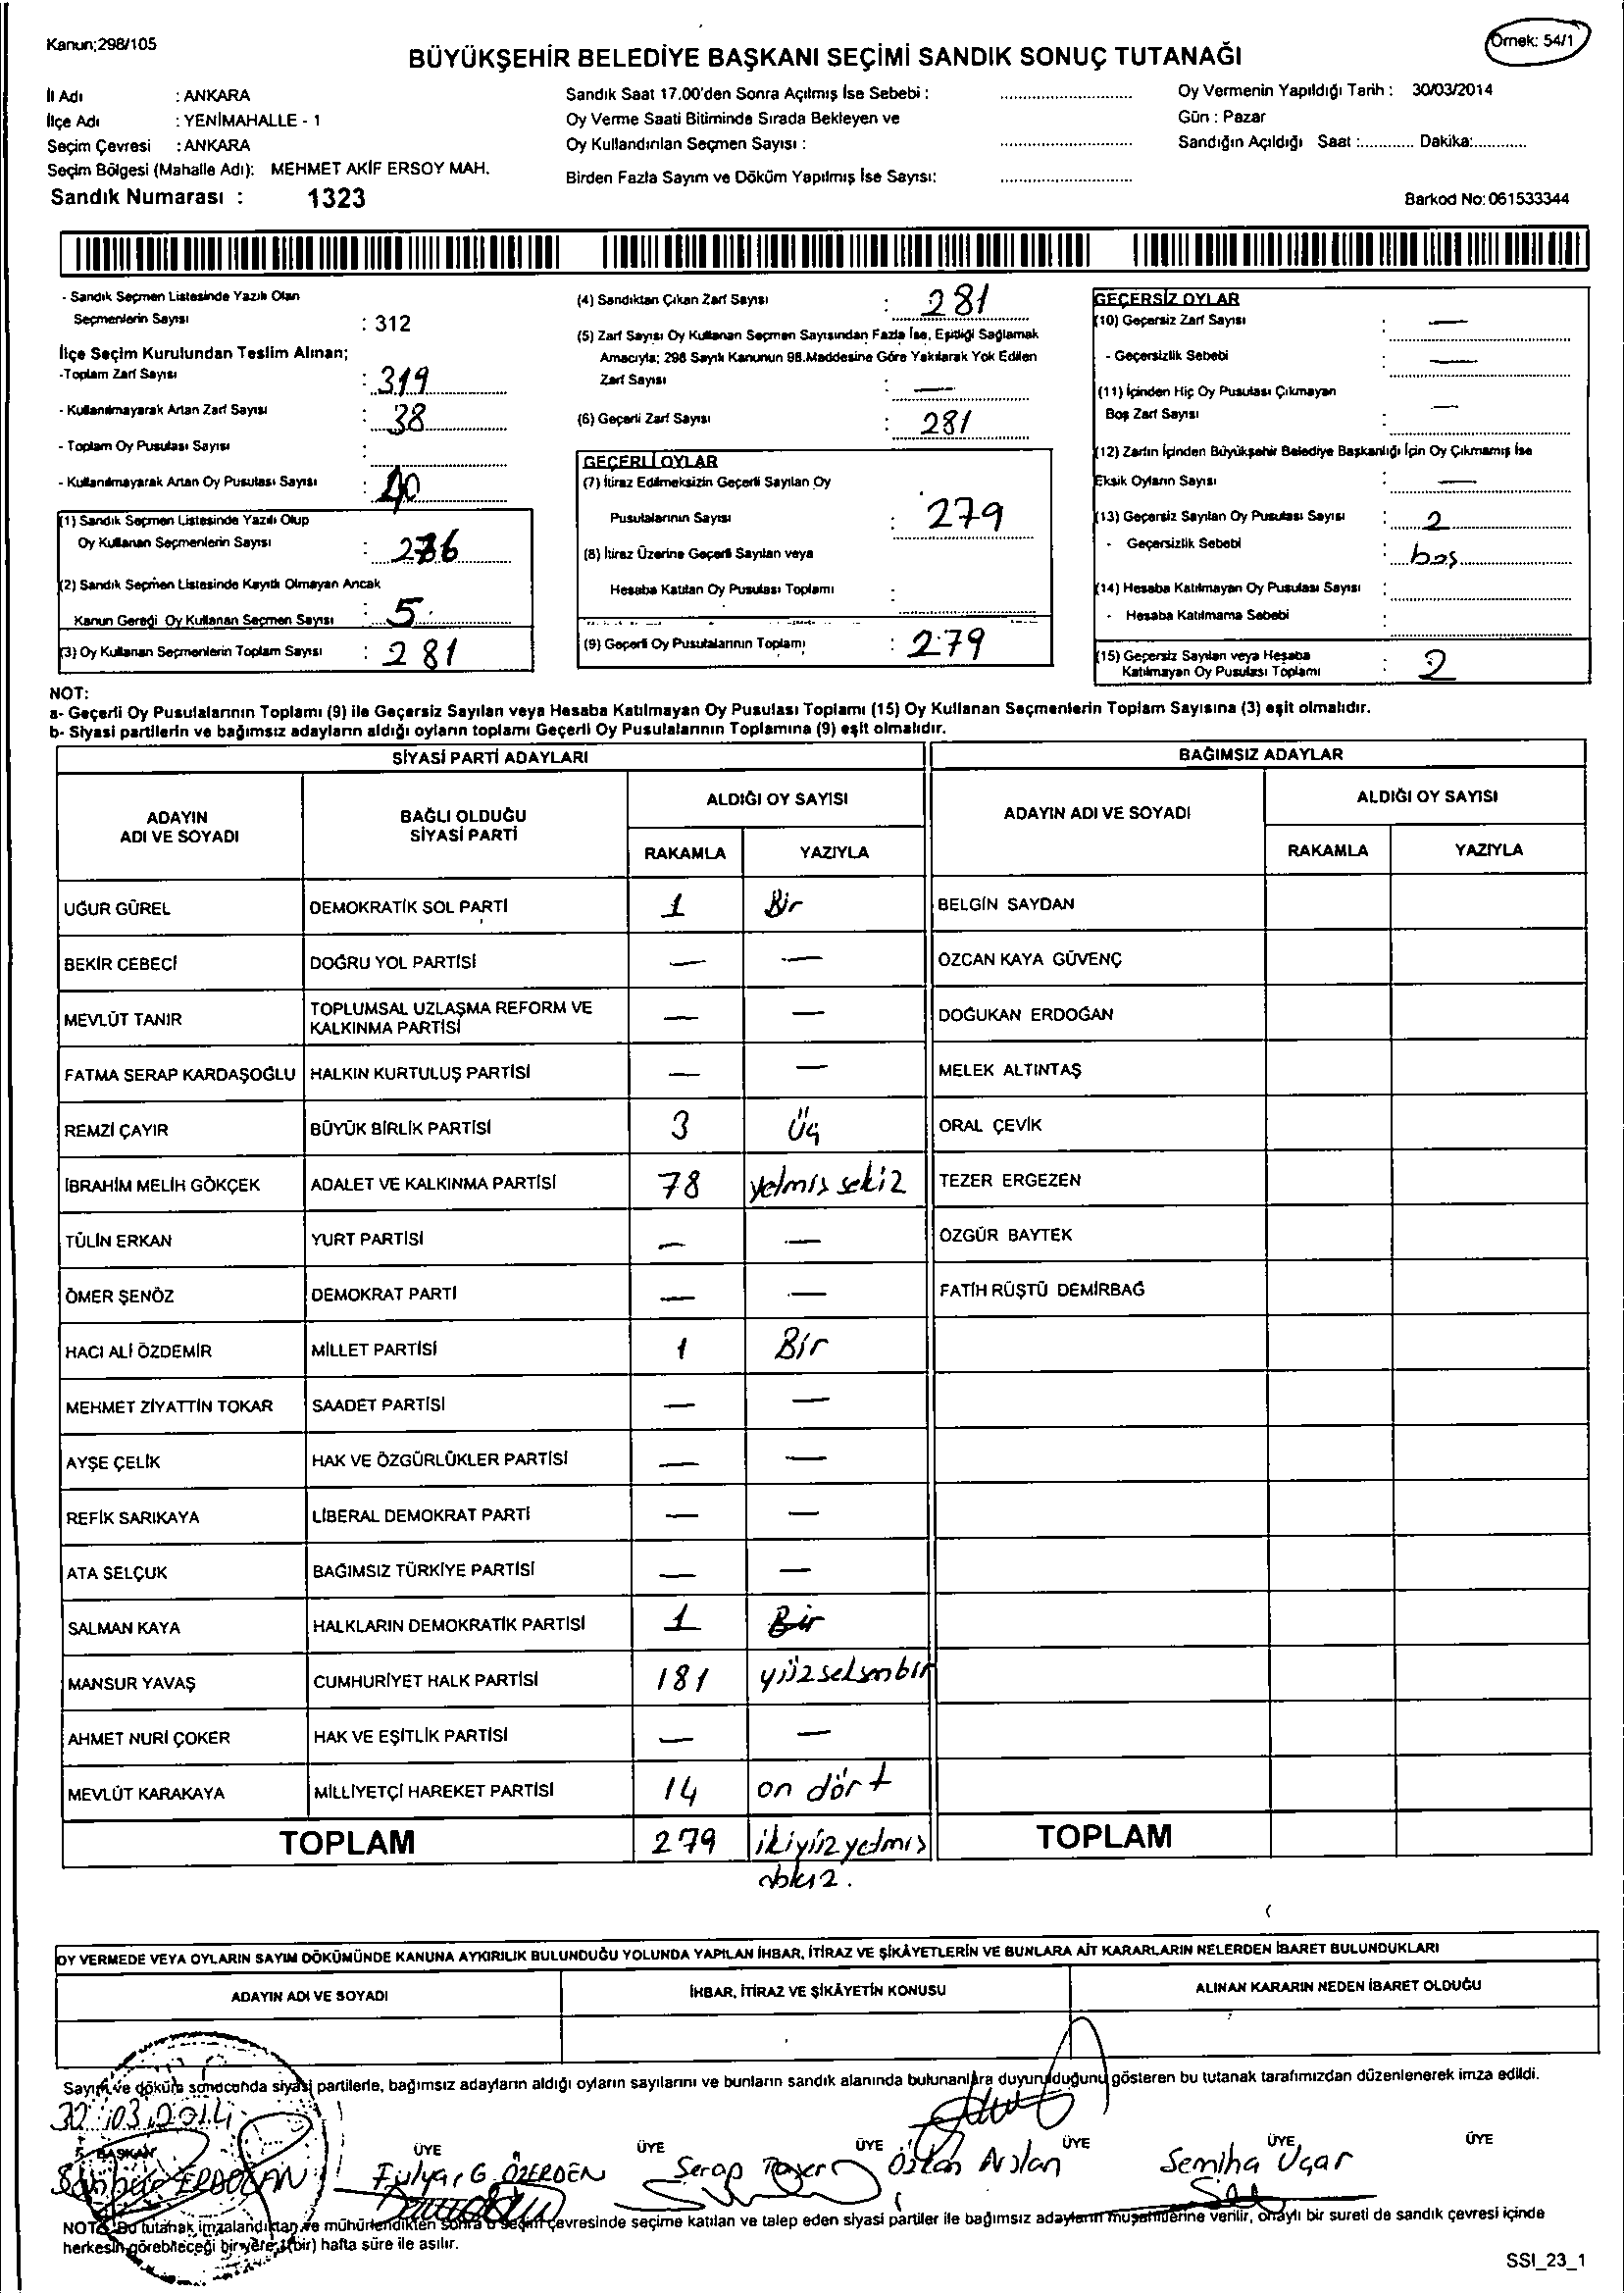 Kanun;298/105
Örnek: 54/1
BÜYÜKŞEHİR BELEDİYE BAŞKANI SEÇİMİ SANDIK SONUÇ TUTANAĞI
İl Adı : ANKARA
İlçe Adı : YENİMAHALLE - 1
Seçim Çevresi : ANKARA
Seçim Bölgesi (Mahalle Adı): MEHMET AKİF ERSOY MAH.
Sandık Numarası : 1323
Sandık Saat 17.00'den Sonra Açılmış İse Sebebi :
Oy Verme Saati Bitiminde Sırada Bekleyen ve
Oy Kullandırılan Seçmen Sayısı :
Birden Fazla Sayım ve Döküm Yapılmış İse Sayısı:
Oy Vermenin Yapıldığı Tarih : 30/03/2014
Gün : Pazar
Sandığın Açıldığı Saat :............ Dakika:............
Barkod No: 061533344
- Sandık Seçmen Listesinde Yazılı Olan
Seçmenlerin Sayısı : 312
İlçe Seçim Kurulundan Teslim Alınan;
-Toplam Zarf Sayısı : 319
- Kullanılmayarak Artan Zarf Sayısı : 38
- Toplam Oy Pusulası Sayısı :
- Kullanılmayarak Artan Oy Pusulası Sayısı : 40
(1) Sandık Seçmen Listesinde Yazılı Olup
Oy Kullanan Seçmenlerin Sayısı : 276
(2) Sandık Seçmen Listesinde Kayıtlı Olmayan Ancak
Kanun Gereği Oy Kullanan Seçmen Sayısı : 5
(3) Oy Kullanan Seçmenlerin Toplam Sayısı : 281
(4) Sandıktan Çıkan Zarf Sayısı : 281
(5) Zarf Sayısı Oy Kullanan Seçmen Sayısından Fazla İse, Eşitliği Sağlamak
Amacıyla; 298 Sayılı Kanunun 98.Maddesine Göre Yakılarak Yok Edilen
Zarf Sayısı : —
(6) Geçerli Zarf Sayısı : 281
GEÇERLİ OYLAR
(7) İtiraz Edilmeksizin Geçerli Sayılan Oy
Pusulalarının Sayısı : 279
(8) İtiraz Üzerine Geçerli Sayılan veya
Hesaba Katılan Oy Pusulası Toplamı :
(9) Geçerli Oy Pusulalarının Toplamı : 279
GEÇERSİZ OYLAR
(10) Geçersiz Zarf Sayısı : —
- Geçersizlik Sebebi : —
(11) İçinden Hiç Oy Pusulası Çıkmayan
Boş Zarf Sayısı : —
(12) Zarfın İçinden Büyükşehir Belediye Başkanlığı İçin Oy Çıkmamış İse
Eksik Oyların Sayısı : —
(13) Geçersiz Sayılan Oy Pusulası Sayısı : 2
- Geçersizlik Sebebi : boş
(14) Hesaba Katılmayan Oy Pusulası Sayısı :
- Hesaba Katılmama Sebebi :
(15) Geçersiz Sayılan veya Hesaba
Katılmayan Oy Pusulası Toplamı : 2
NOT:
a- Geçerli Oy Pusulalarının Toplamı (9) ile Geçersiz Sayılan veya Hesaba Katılmayan Oy Pusulası Toplamı (15) Oy Kullanan Seçmenlerin Toplam Sayısına (3) eşit olmalıdır.
b- Siyasi partilerin ve bağımsız adayların aldığı oyların toplamı Geçerli Oy Pusulalarının Toplamına (9) eşit olmalıdır.
SİYASİ PARTİ ADAYLARI BAĞIMSIZ ADAYLAR
ADAYIN ADI VE SOYADI BAĞLI OLDUĞU SİYASİ PARTİ ALDIĞI OY SAYISI ADAYIN ADI VE SOYADI ALDIĞI OY SAYISI
RAKAMLA YAZIYLA RAKAMLA YAZIYLA
UĞUR GÜREL DEMOKRATİK SOL PARTİ 1 Bir BELGİN SAYDAN
BEKİR CEBECİ DOĞRU YOL PARTİSİ — — ÖZCAN KAYA GÜVENÇ
MEVLÜT TANIR TOPLUMSAL UZLAŞMA REFORM VE KALKINMA PARTİSİ — — DOĞUKAN ERDOĞAN
FATMA SERAP KARDAŞOĞLU HALKIN KURTULUŞ PARTİSİ — — MELEK ALTINTAŞ
REMZİ ÇAYIR BÜYÜK BİRLİK PARTİSİ 3 Üç ORAL ÇEVİK
İBRAHİM MELİH GÖKÇEK ADALET VE KALKINMA PARTİSİ 78 yetmiş sekiz TEZER ERGEZEN
TÜLİN ERKAN YURT PARTİSİ — — ÖZGÜR BAYTEK
ÖMER ŞENÖZ DEMOKRAT PARTİ — — FATİH RÜŞTÜ DEMİRBAĞ
HACI ALİ ÖZDEMİR MİLLET PARTİSİ 1 Bir
MEHMET ZİYATTİN TOKAR SAADET PARTİSİ — —
AYŞE ÇELİK HAK VE ÖZGÜRLÜKLER PARTİSİ — —
REFİK SARIKAYA LİBERAL DEMOKRAT PARTİ — —
ATA SELÇUK BAĞIMSIZ TÜRKİYE PARTİSİ — —
SALMAN KAYA HALKLARIN DEMOKRATİK PARTİSİ 1 Bir
MANSUR YAVAŞ CUMHURİYET HALK PARTİSİ 181 yüzseksenbir
AHMET NURİ ÇOKER HAK VE EŞİTLİK PARTİSİ — —
MEVLÜT KARAKAYA MİLLİYETÇİ HAREKET PARTİSİ 14 on dört
TOPLAM 279 ikiyüzyetmiş TOPLAM
dokuz.
OY VERMEDE VEYA OYLARIN SAYIM DÖKÜMÜNDE KANUNA AYKIRILIK BULUNDUĞU YOLUNDA YAPILAN İHBAR, İTİRAZ VE ŞİKÂYETLERİN VE BUNLARA AİT KARARLARIN NELERDEN İBARET BULUNDUKLARI
ADAYIN ADI VE SOYADI İHBAR, İTİRAZ VE ŞİKÂYETİN KONUSU ALINAN KARARIN NEDEN İBARET OLDUĞU
Sayım ve döküm sonucunda siyasi partilerle, bağımsız adayların aldığı oyların sayılarını ve bunların sandık alanında bulunanlara duyurulduğunu gösteren bu tutanak tarafımızdan düzenlenerek imza edildi.
BAŞKAN ÜYE ÜYE ÜYE ÜYE ÜYE ÜYE
ERDOĞAN Fulya G. ÖZERDEN Serap Özlen Arslan Semiha Uçar
NOT: Bu tutanak imzalandıktan ve mühürlendikten sonra o seçim çevresinde seçime katılan ve talep eden siyasi partiler ile bağımsız adayların müşahitlerine verilir, onaylı bir sureti de sandık çevresi içinde
herkesin görebileceği bir yere 1(bir) hafta süre ile asılır.
SSI_23_1